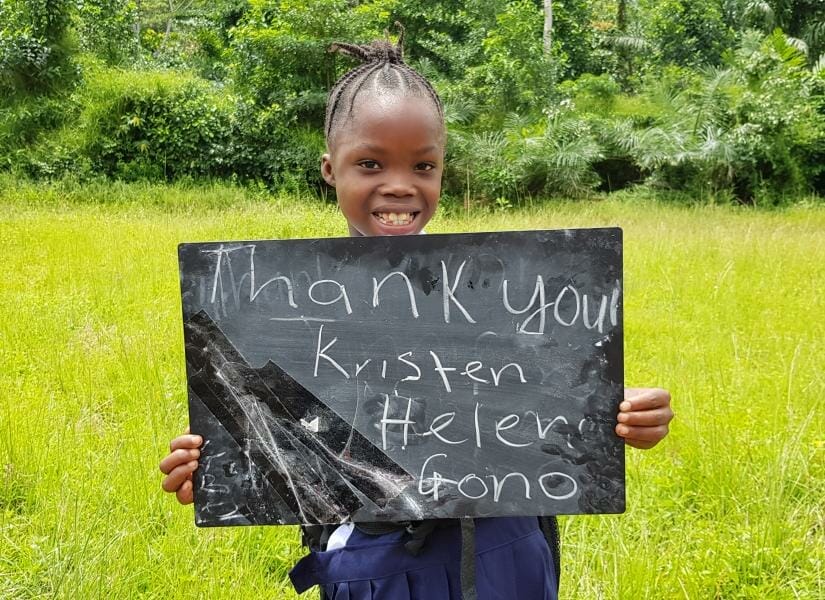 Thank you
Kristen
Helen
Gono